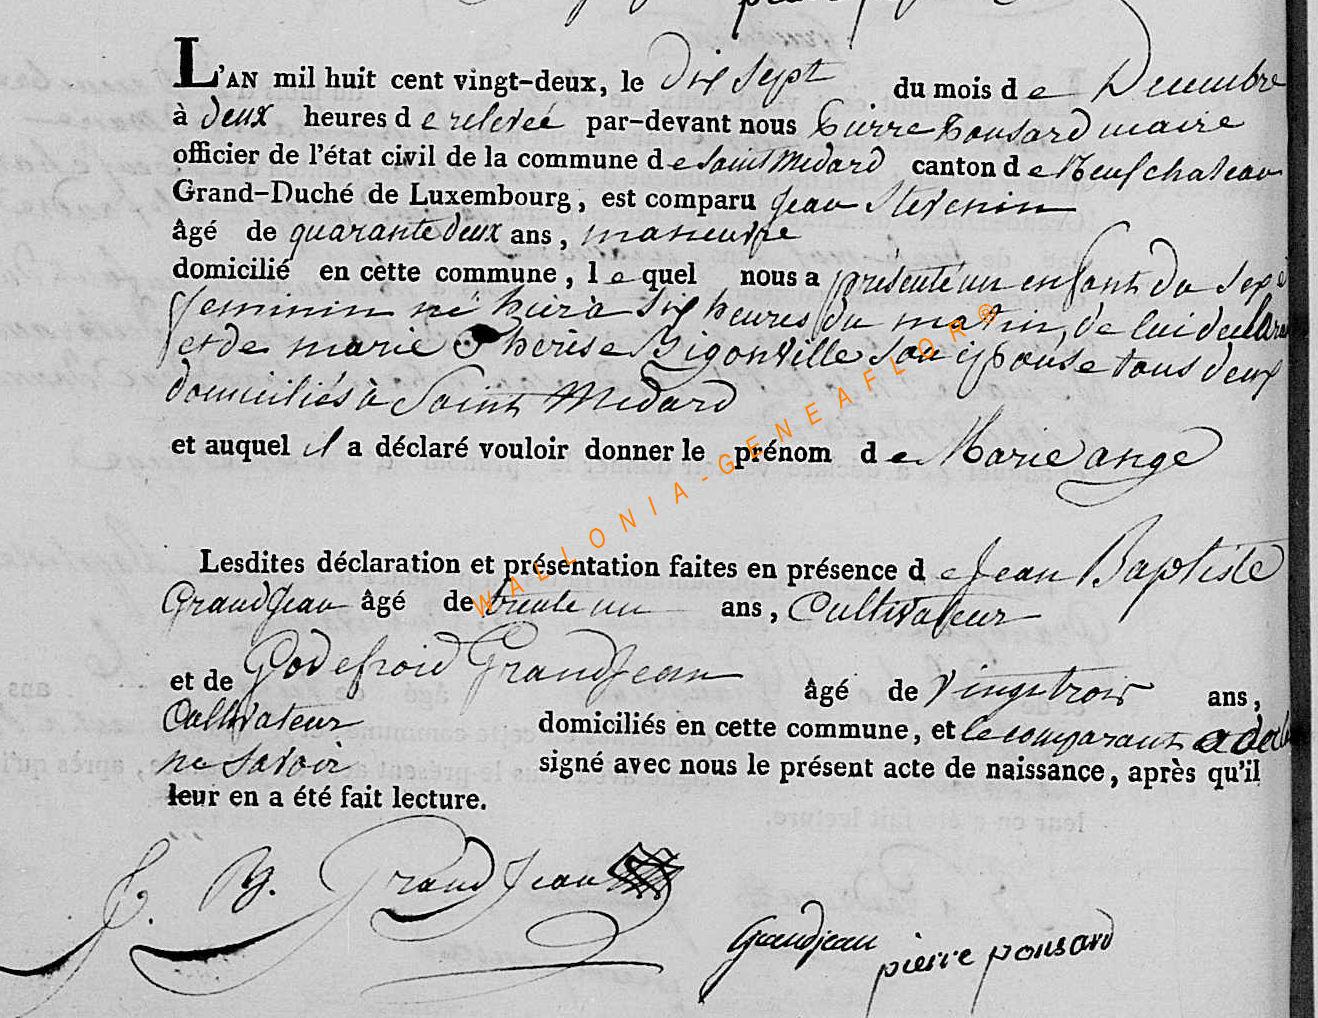 L'AN mil huit cent vingt-deux, le dix sept du mois de Decembre
à deux heures de relevée par-devant nous Pierre Ponsard maire
officier de l'état civil de la commune de Saint Medard canton de Neufchateau
Grand-Duché de Luxembourg, est comparu Jean Stevenin
âgé de quarante deux ans, maneuvre
domicilié en cette commune, lequel nous a présenté un enfant du sexe
feminin né hier à six heures du matin, de lui declarant
et de marie Therese Bigonville son epouse tous deux
domiciliés à Saint Medard
et auquel il a déclaré vouloir donner le prénom de Marie ange
Lesdites déclaration et présentation faites en présence de Jean Baptiste
Grandjean âgé de trente un ans, Cultivateur
et de Godefroid Grandjean âgé de vingt trois ans,
Cultivateur domiciliés en cette commune, et le comparant a
ne savoir signé avec nous le présent acte de naissance, après qu'il
leur en a été fait lecture.
J. B. Grandjean
Grandjean pierre ponsard
WALLONIA-GENEAFLOR®